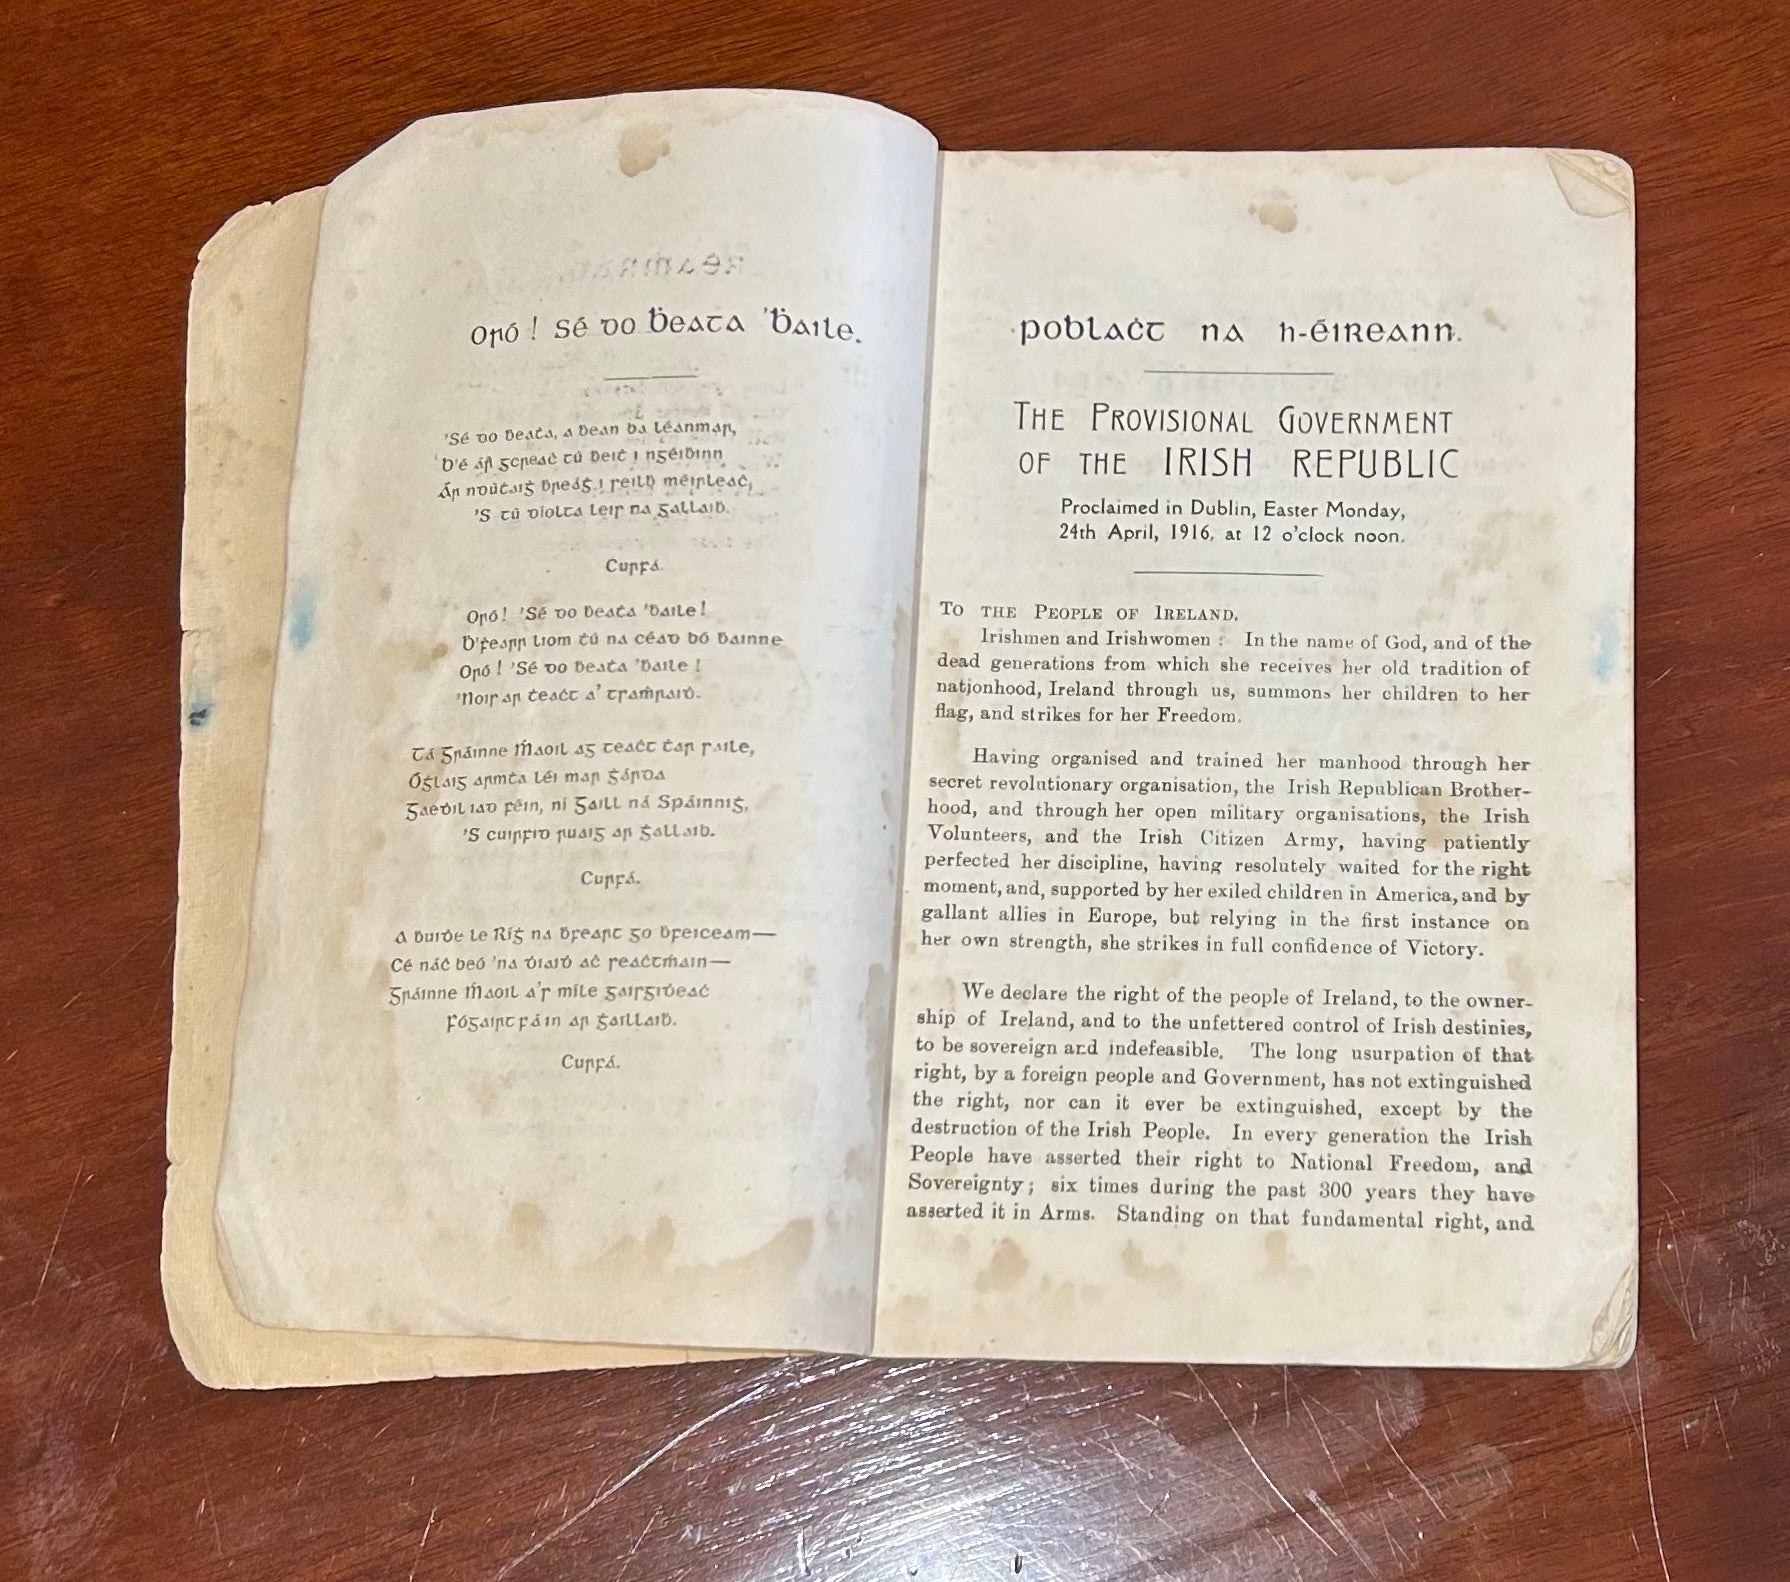 Oró! Sé do ḃeata 'ḃaile.
'Sé do ḃeaṫa, a ḃean ḃa léanmar,
B'é ár gcreaċ tú ḃeiṫ i ngéiḃinn
Ár ndúṫaiġ ḃreáġ i seilḃ méirleaċ,
'S tú díolta leis na gallaiḃ.
Curfá.
Oró! 'Sé do ḃeaṫa 'ḃaile!
B'ḟearr liom ṫú na céad bó ḃainne
Oró! 'Sé do ḃeaṫa 'ḃaile!
'Nois ar ṫeaċt a' tsaṁraiḋ.
Tá Gráinne Ṁaoil ag teaċt ṫar sáile,
Óġlaiġ armṫa léi mar ġárda
Gaeḋil iad féin, ní Gaill ná Spáinniġ,
'S cuirfid ruaig ar ġallaiḃ.
Curfá.
A ḃuiḋe le Ríġ na ḃfeart go ḃfeiceam—
Cé náċ beó 'na ḋiaiḋ aċ seaċtṁain—
Gráinne Ṁaoil a's míle gaisgiḋeaċ
Fógairt fáin ar ġaillaiḃ.
Curfá.
Poblaċt na h-Éireann.
The Provisional Government
of the Irish Republic
Proclaimed in Dublin, Easter Monday,
24th April, 1916, at 12 o'clock noon.
To the People of Ireland.
Irishmen and Irishwomen : In the name of God, and of the
dead generations from which she receives her old tradition of
nationhood, Ireland through us, summons her children to her
flag, and strikes for her Freedom.
Having organised and trained her manhood through her
secret revolutionary organisation, the Irish Republican Brother-
hood, and through her open military organisations, the Irish
Volunteers, and the Irish Citizen Army, having patiently
perfected her discipline, having resolutely waited for the right
moment, and, supported by her exiled children in America, and by
gallant allies in Europe, but relying in the first instance on
her own strength, she strikes in full confidence of Victory.
We declare the right of the people of Ireland, to the owner-
ship of Ireland, and to the unfettered control of Irish destinies,
to be sovereign and indefeasible. The long usurpation of that
right, by a foreign people and Government, has not extinguished
the right, nor can it ever be extinguished, except by the
destruction of the Irish People. In every generation the Irish
People have asserted their right to National Freedom, and
Sovereignty; six times during the past 300 years they have
asserted it in Arms. Standing on that fundamental right, and